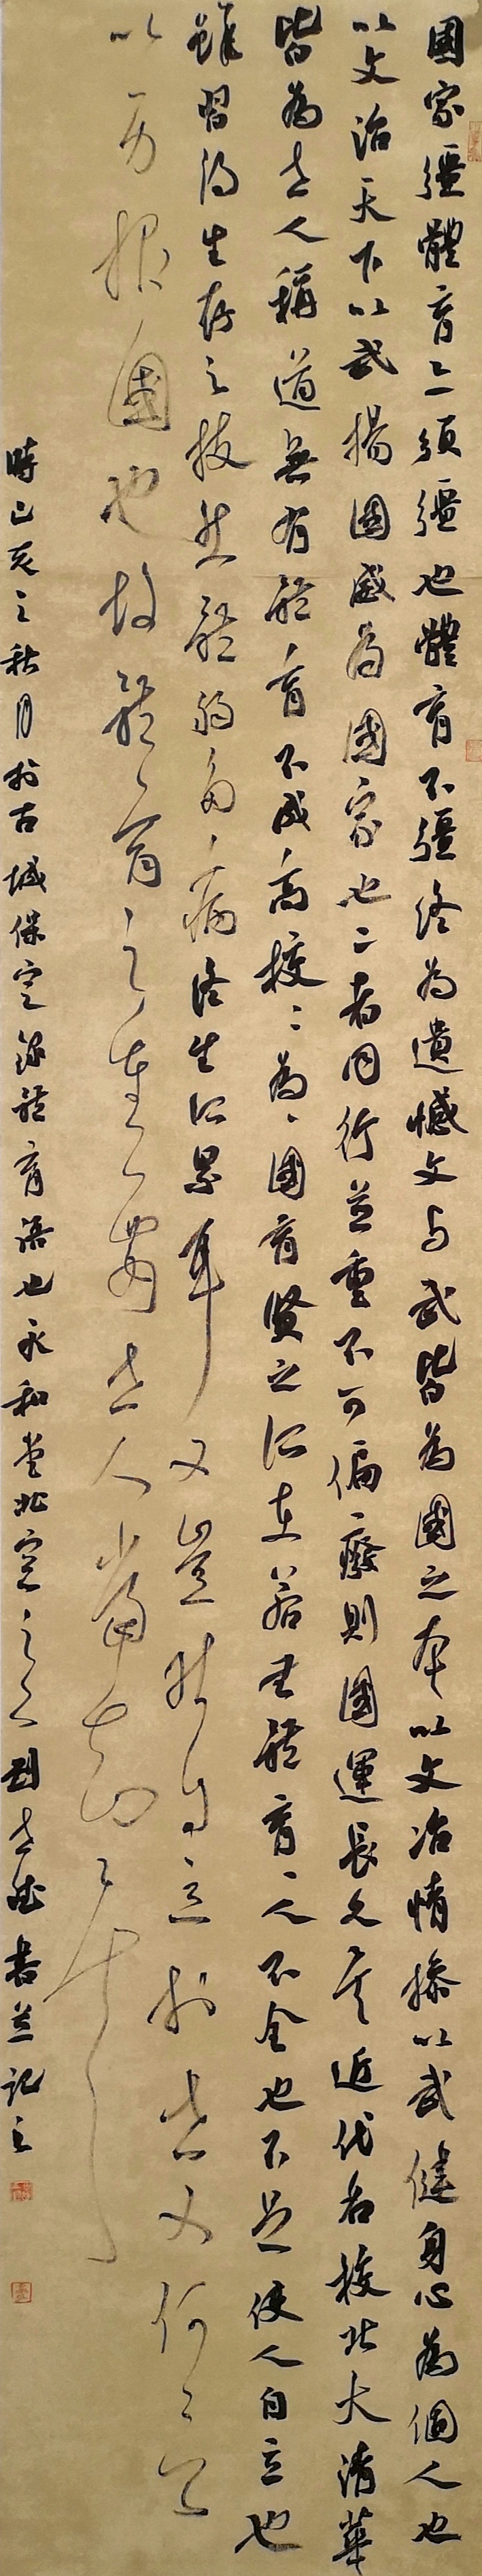 國家彊體育亦須彊也體育不彊終為遺憾文与武皆為國之本以文冶情操以武健身心為個人也
以文治天下以武揚國威為國家也二者同行並重不可偏廢則國運長久矣近代名校北大清華
皆為世人稱道無有體育不成高校高校為國育賢之所在若無體育人不全也不足使人自立也
雖習得生存之技然體弱多病終生所累耳又豈能自立於世又何言
以力報國也故體育之重要世人當知之
時己亥之秋月於古城保定錄體育語也永和堂北窗之人劉世然書並記之